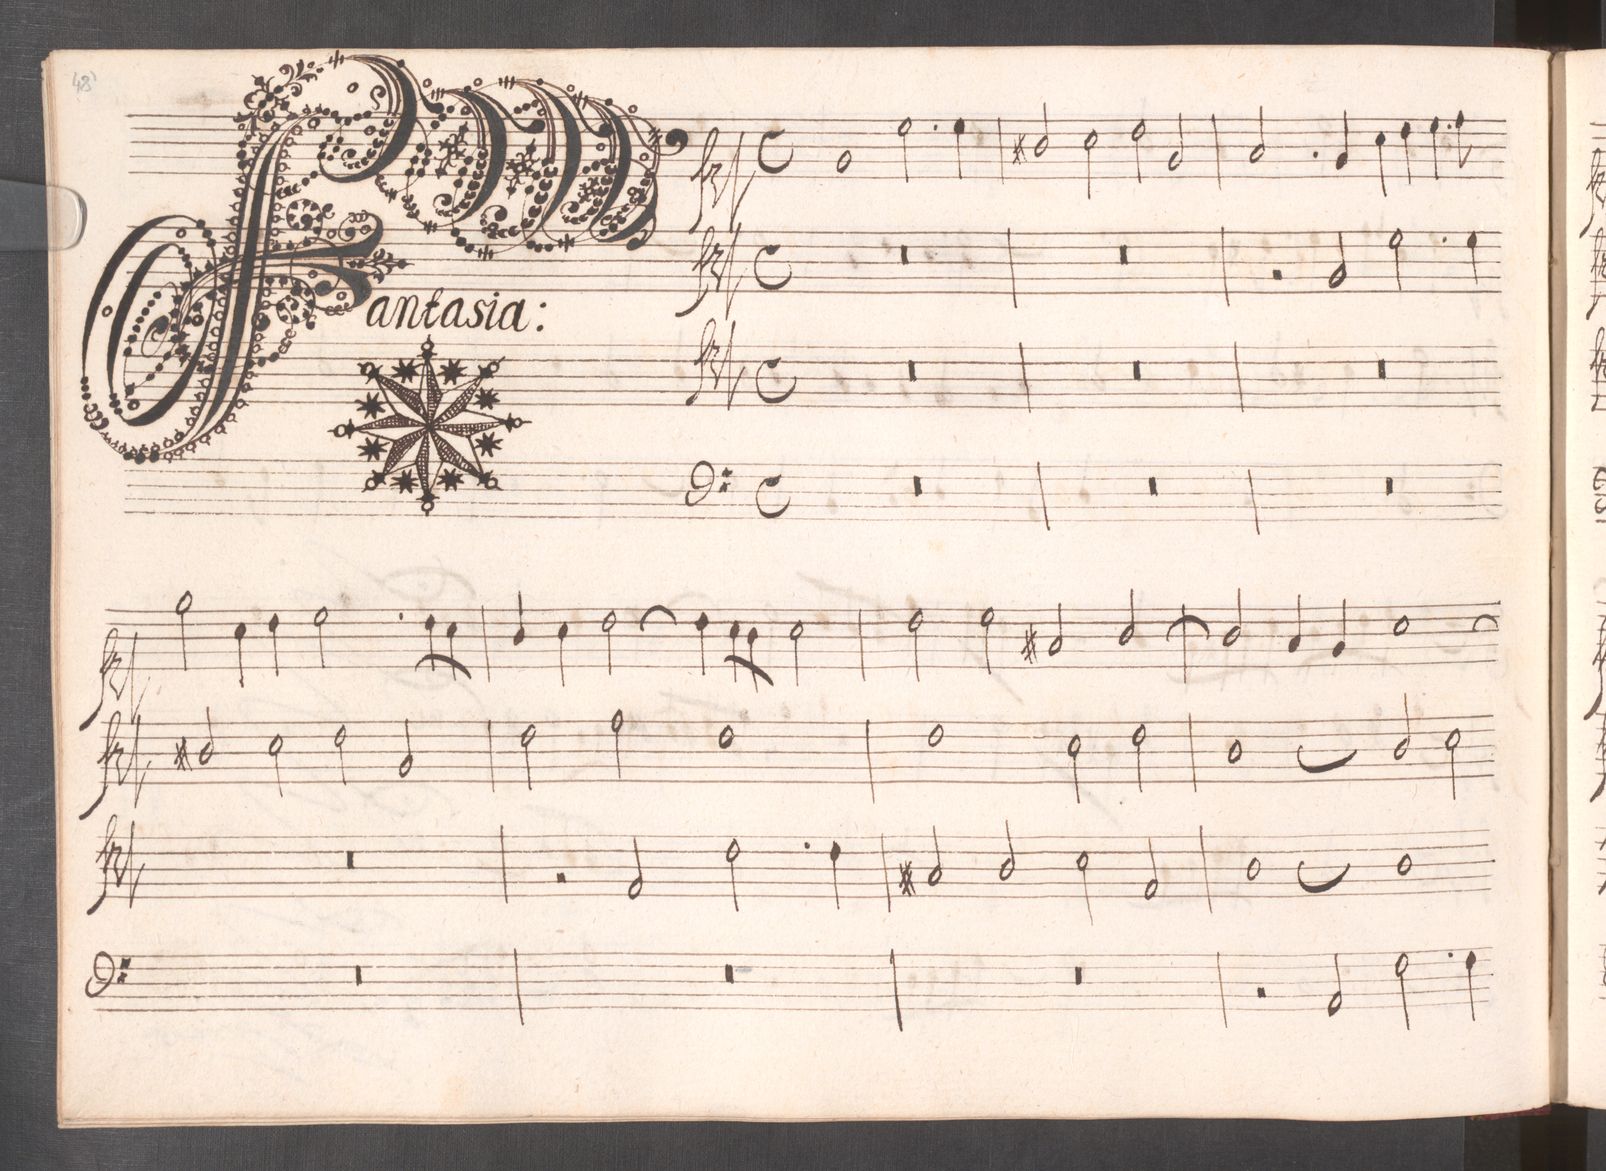 48
Fantasia: